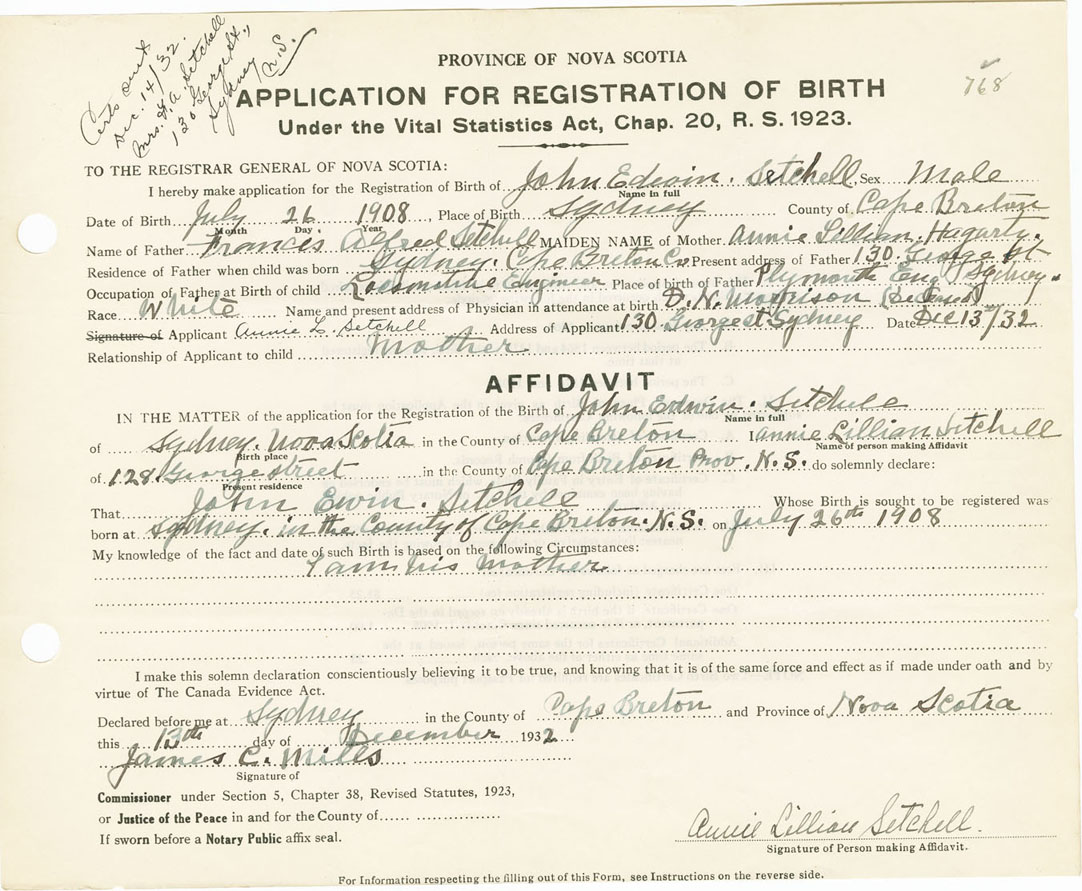 Certs sent
Dec. 14/32.
Mrs. F. A. Setchell
130 George St.,
Sydney
N.S.
768
PROVINCE OF NOVA SCOTIA
APPLICATION FOR REGISTRATION OF BIRTH
Under the Vital Statistics Act, Chap. 20, R. S. 1923.
TO THE REGISTRAR GENERAL OF NOVA SCOTIA:
I hereby make application for the Registration of Birth of John Edwin. Setchell Sex Male
Name in full
Date of Birth July 26 1908, Place of Birth Sydney County of Cape Breton
Month Day. Year
Name of Father Frances Alfred Setchell MAIDEN NAME of Mother Annie Lillian. Hagarty.
Residence of Father when child was born Sydney. Cape Breton Co. Present address of Father 130. George St
Occupation of Father at Birth of child Locomotive Engineer Place of birth of Father Plymouth Eng Sydney.
Race White Name and present address of Physician in attendance at birth D. N. Morrison (Deceased)
Signature of Applicant Annie L. Setchell Address of Applicant 130 George st Sydney Date Dec 13th/32
Relationship of Applicant to child Mother
AFFIDAVIT
IN THE MATTER of the application for the Registration of the Birth of John Edwin. Setchell
Name in full
of Sydney. Nova Scotia in the County of Cape Breton I Annie Lillian Setchell
Birth place Name of person making Affidavit
of 128 George street in the County of Cape Breton Prov. N.S. do solemnly declare:
Present residence
That John Ewin. Setchell Whose Birth is sought to be registered was
born at Sydney. in the County of Cape Breton. N.S. on July 26th 1908
My knowledge of the fact and date of such Birth is based on the following Circumstances:
I am his Mother
I make this solemn declaration conscientiously believing it to be true, and knowing that it is of the same force and effect as if made under oath and by
virtue of The Canada Evidence Act.
Declared before me at Sydney in the County of Cape Breton and Province of Nova Scotia
this 13th day of December 1932
James C. Mills
Signature of
Commissioner under Section 5, Chapter 38, Revised Statutes, 1923,
or Justice of the Peace in and for the County of
If sworn before a Notary Public affix seal.
Annie Lillian Setchell.
Signature of Person making Affidavit.
For Information respecting the filling out of this Form, see Instructions on the reverse side.